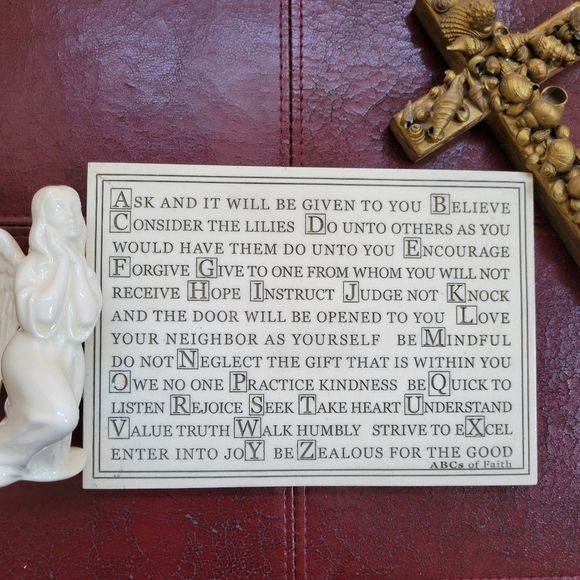 ASK AND IT WILL BE GIVEN TO YOU BELIEVE
CONSIDER THE LILIES DO UNTO OTHERS AS YOU
WOULD HAVE THEM DO UNTO YOU ENCOURAGE
FORGIVE GIVE TO ONE FROM WHOM YOU WILL NOT
RECEIVE HOPE INSTRUCT JUDGE NOT KNOCK
AND THE DOOR WILL BE OPENED TO YOU LOVE
YOUR NEIGHBOR AS YOURSELF BE MINDFUL
DO NOT NEGLECT THE GIFT THAT IS WITHIN YOU
OWE NO ONE PRACTICE KINDNESS BE QUICK TO
LISTEN REJOICE SEEK TAKE HEART UNDERSTAND
VALUE TRUTH WALK HUMBLY STRIVE TO EXCEL
ENTER INTO JOY BE ZEALOUS FOR THE GOOD
ABCs of Faith